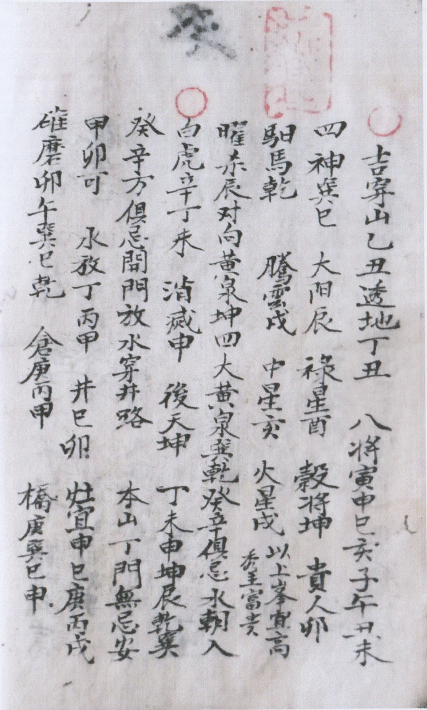 癸
吉穿山乙丑透地丁丑 八將寅申巳亥子午丑未
四神巽巳 大阳辰 祿星酉 穀將坤 貴人卯
馹馬乾 騰雲戌 中星亥 火星戌 以上峯宜高
秀主富贵
曜杀辰对向黄泉坤四大黄泉巽乾癸辛俱忌水朝入
白虎辛丁未 消滅申 後天坤 丁未申坤辰乾巽
癸辛方俱忌開門放水穿井路 本山丁門無忌安
甲卯可 水放丁丙甲 井巳卯 灶宜申巳庚丙戌
碓磨卯午巽巳乾 倉庚丙甲 橋庚巽巳申